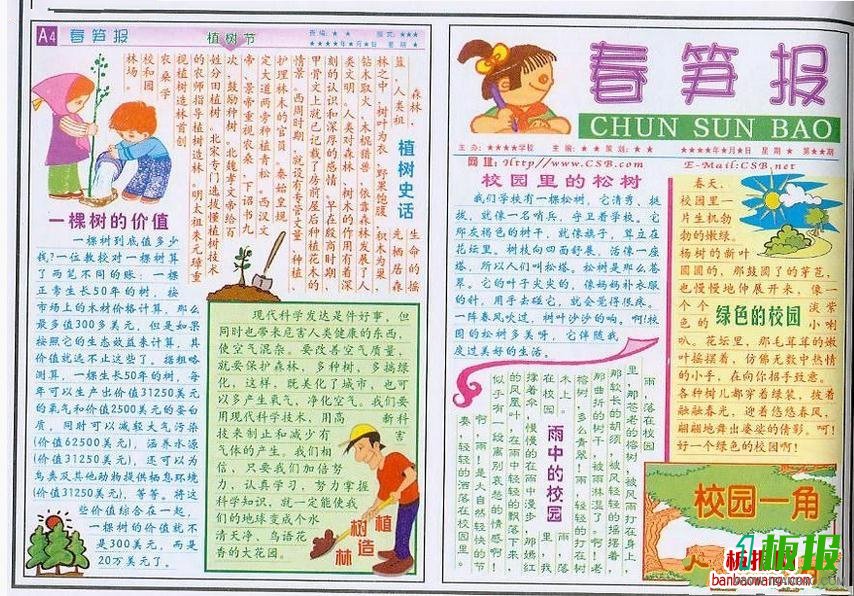 A4 春笋报
植树节
责编：★ ★ 版式：★★★
★★★★年★月★日 星期 ★
植树史话
森林，
生命的摇
篮，人类祖
先栖居森
林之中，树叶为衣，野果饱腹，积木为巢，
钻木取火，木棍猎兽，依靠森林发展了人
类文明。人类对森林、树木的作用有着深
刻的认识和深厚的感情。早在殷商时期，
甲骨文上就已记载了房前屋后种植花木的
情景。西周时期，就设有专管丈量、种植、
护理林木的官员。秦始皇规
定大道两旁种植青松。西汉文
帝、景帝重视农桑，下诏书九
次，鼓励种树。北魏孝文帝给百
姓分田植树。北宋专门选拔懂植树技术
的农师指导植树造林。明太祖朱元璋重
视植树造林首创
农桑学
校和园
林场。
一棵树的价值
一棵树到底值多少
钱？一位教授对一棵树算
了两笔不同的账：一棵
正常生长50年的树，按
市场上的木材价格计算，那么
最多值300多美元，但是如果
按照它的生态效益来计算，其
价值就远不止这些了。据粗略
测算，一棵生长50年的树，每
年可以生产出价值31250美元
的氧气和价值2500美元的蛋白
质，同时可以减轻大气污染
(价值62500美元)，涵养水源
(价值31250美元)，还可以为
鸟类及其他动物提供栖息环境
(价值31250美元)，等等。将这
些价值综合在一起，
一棵树的价值就不
是300美元，而是
20万美元了。
现代科学发达是件好事，但
同时也带来危害人类健康的东西，
使空气混杂。要改善空气质量，
就要保护森林，多种树，多搞绿
化，这样，既美化了城市，也可
以多产生氧气，净化空气。我们要
用现代科学技术，用高 新科
技来制止和减少有 害
气体的产生。我们相
信，只要我们加倍努
力，认真学习，努力掌握
科学知识，就一定能使我
们的地球变成个水
清天净、鸟语花
香的大花园。
植树造林
春笋报
CHUN SUN BAO
主办：★★★★学校 主编：★ ★ 策划：★ ★ ★★★★年★月★日 星期 ★ 第★★期
网址：Http//www.CSB.com E-Mail:CSB.net
校园里的松树
我们学校有一棵松树，它清秀，挺
拔，就像一名哨兵，守卫着学校。它
那灰褐色的树干，就像旗子，耸立在
花坛里。树枝向四面舒展，活像一座
塔，所以人们叫松塔。松树是那么苍
翠。它的叶子尖尖的，像妈妈补衣服
的针，用手去碰它，就会觉得很疼。
一阵春风吹过，树叶沙沙的响。啊！校
园的松树多美呀，它伴随我
度过美好的生活。
绿色的校园
春天，
校园里一
片生机勃
勃的嫩绿。
杨树的新叶
圆圆的，那鼓圆了的芽苞，
也慢慢地伸展开来，像一
个个 淡紫
色的 小喇
叭。花坛里，那毛茸茸的嫩
叶摇摆着，仿佛无数中热情
的小手，在向你招手致意。
各种树儿都穿着绿装，披着
融融春光，迎着悠悠春风，
翩翩地舞出婆娑的倩影。呵！
好一个绿色的校园啊！
雨中的校园
雨，落在校园
里，那苍老的榕树，被风雨打在身上，
那较长的胡须，被风轻轻的摇摆着，
那曲折的树干，被雨淋湿了。啊！老
榕树，多么青翠！雨，轻轻的打在树
木上。
在校园 雨 落
的凤凰叶，在雨中轻轻的飘落下来，
似乎有一段离别哀愁的情感啊！
啊，雨，是大自然轻快的节
奏，轻轻的洒落在校园里。
校园一角
板报
板报网
banbaowang.com